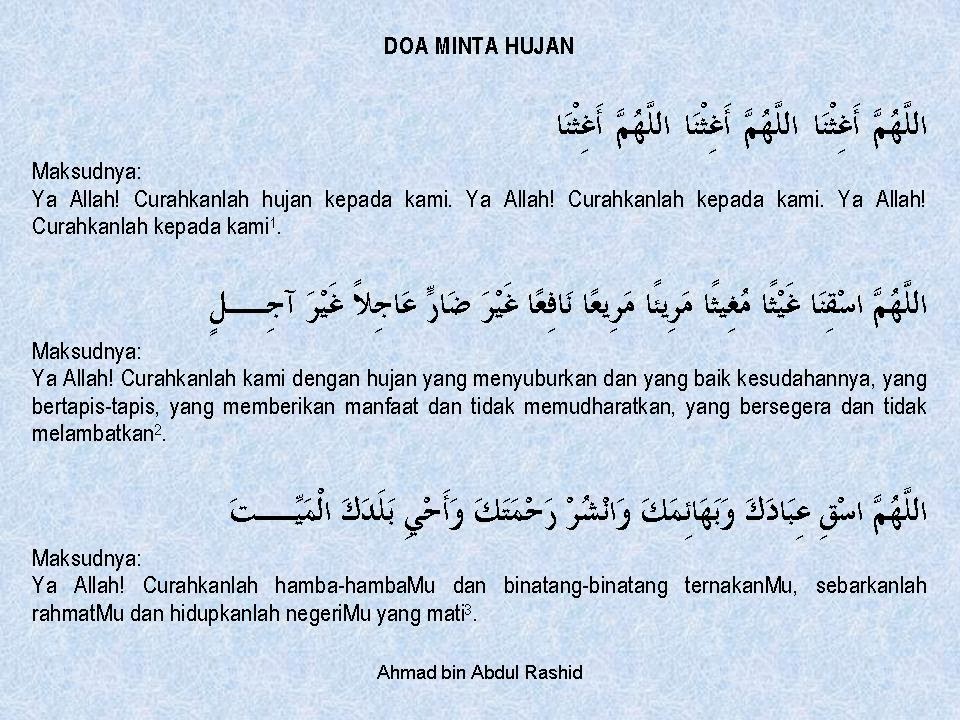 DOA MINTA HUJAN
اللَّهُمَّ أَغِثْنَا اللَّهُمَّ أَغِثْنَا اللَّهُمَّ أَغِثْنَا
Maksudnya:
Ya Allah! Curahkanlah hujan kepada kami. Ya Allah! Curahkanlah kepada kami. Ya Allah!
Curahkanlah kepada kami¹.
اللَّهُمَّ اسْقِنَا غَيْثًا مُغِيثًا مَرِيئًا مَرِيعًا نَافِعًا غَيْرَ ضَارٍّ عَاجِلاً غَيْرَ آجِـــــلٍ
Maksudnya:
Ya Allah! Curahkanlah kami dengan hujan yang menyuburkan dan yang baik kesudahannya, yang
bertapis-tapis, yang memberikan manfaat dan tidak memudharatkan, yang bersegera dan tidak
melambatkan².
اللَّهُمَّ اسْقِ عِبَادَكَ وَبَهَائِمَكَ وَانْشُرْ رَحْمَتَكَ وَأَحْيِ بَلَدَكَ الْمَيِّـــــتَ
Maksudnya:
Ya Allah! Curahkanlah hamba-hambaMu dan binatang-binatang ternakanMu, sebarkanlah
rahmatMu dan hidupkanlah negeriMu yang mati³.
Ahmad bin Abdul Rashid